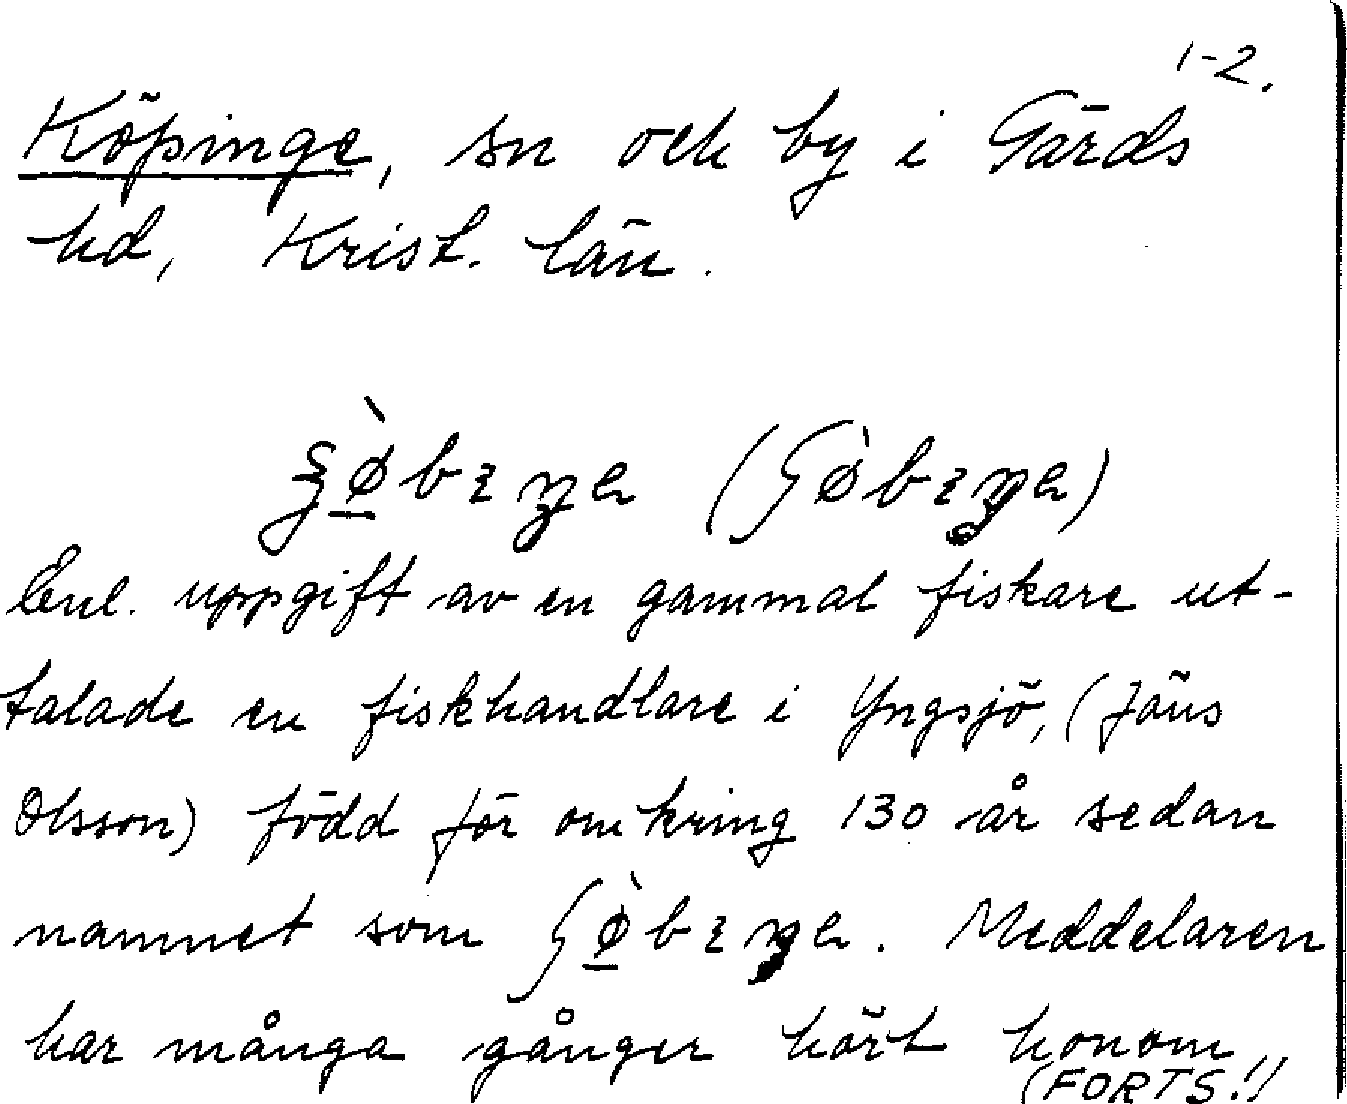 1-2.
Köpinge, sn och by i Gärds
hd, Krist. län.
Enl. uppgift av en gammal fiskare ut-
talade en fiskhandlare i Yngsjö, (Jöns
Olsson) född för omkring 130 år sedan
namnet som . Meddelaren
har många gånger hört honom
(FORTS.!)